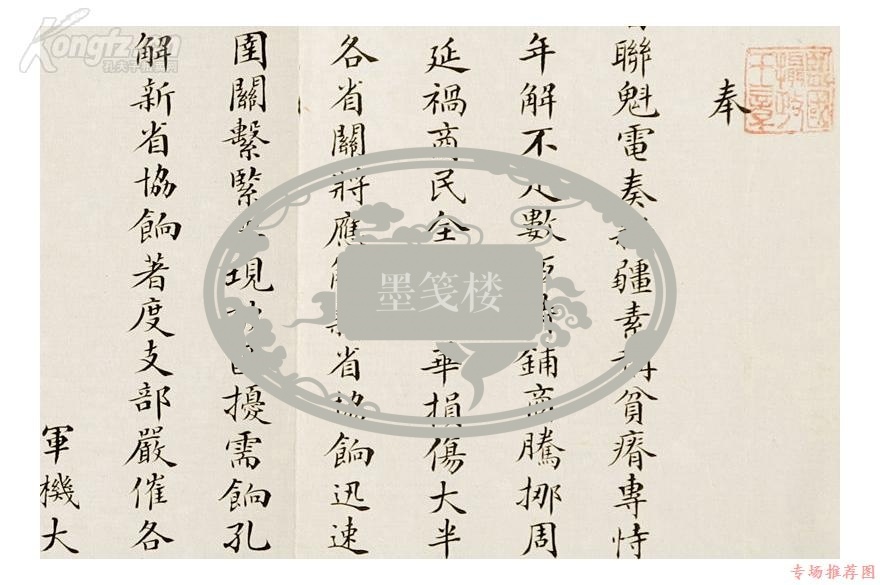 監國攝政王章
奉
聯魁電奏疆素貧瘠專恃
年解不足數鋪商騰挪周
延禍商民全華損傷大半
各省關將應省協餉迅速
圉關繫緊現擾需餉孔
解新省協餉著度支部嚴催各
軍機大
墨笺楼
Kongfz.cn
孔夫子旧书网
专场推荐图